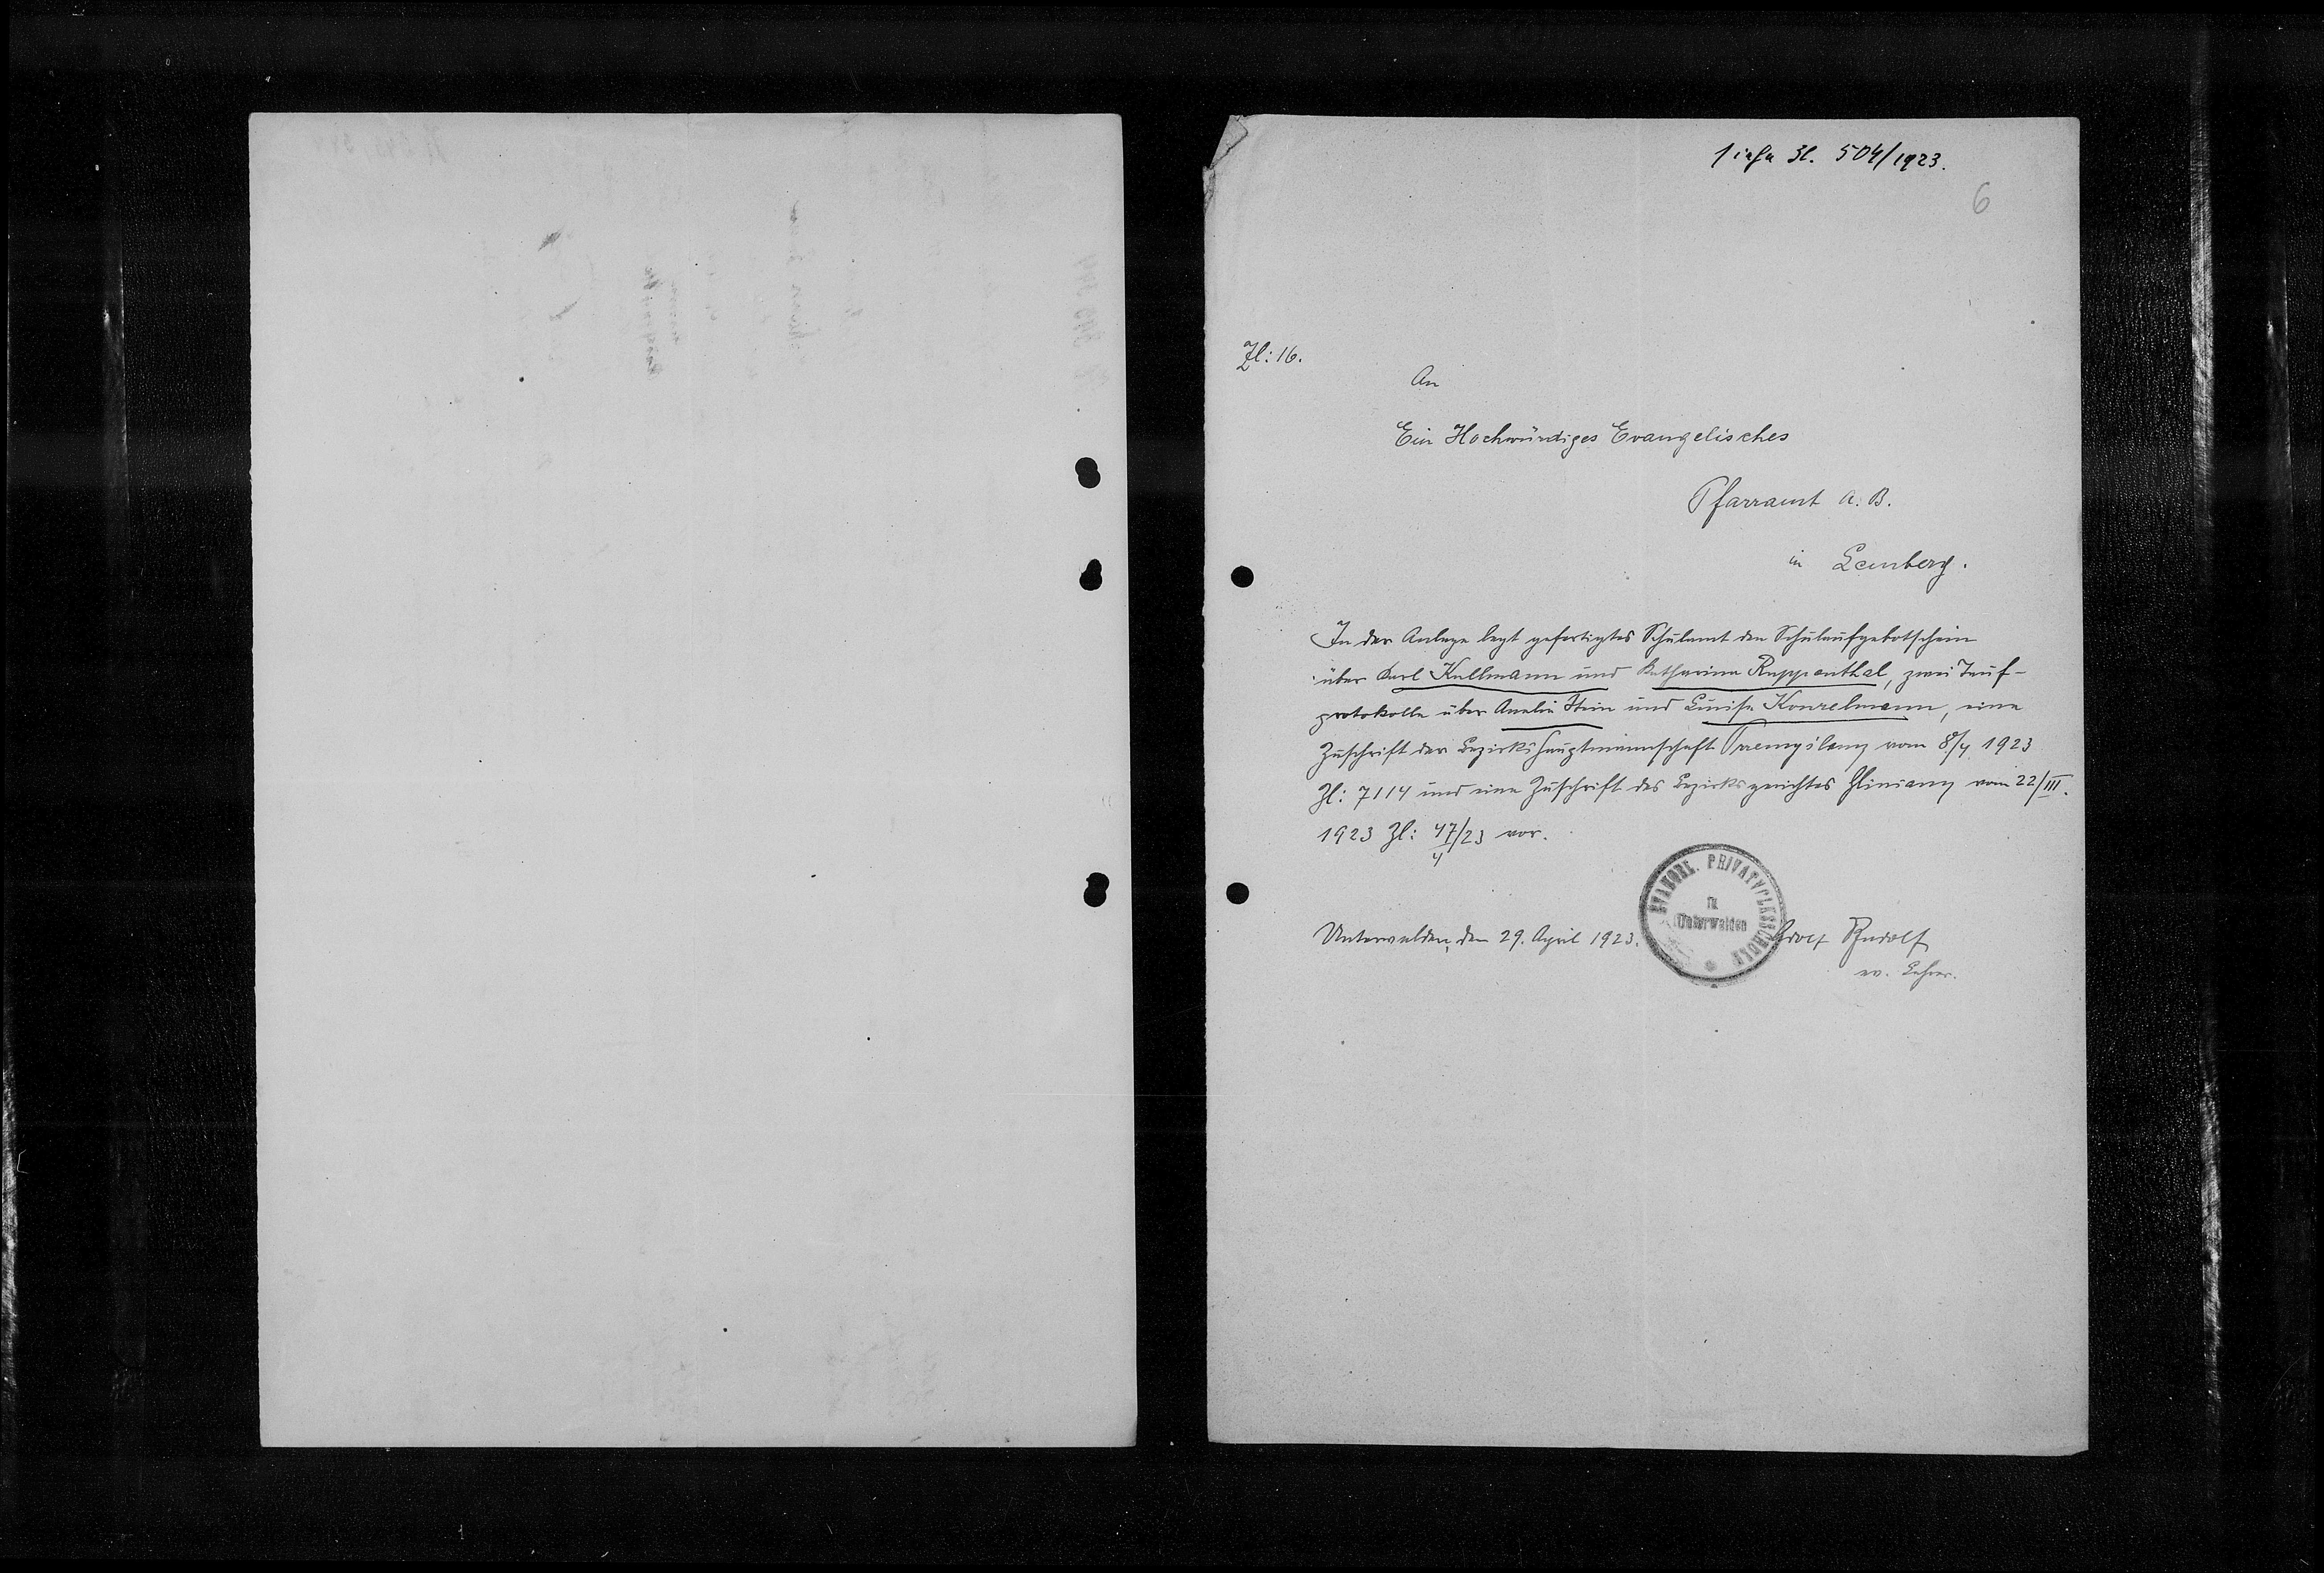 siehe Zl. 504/1923.
6
Zl: 16.
An
Ein Hochwürdiges Evangelisches
Pfarramt A. B.
in Lemberg.
In der Anlage legt gefertigtes Schulamt den Schulaufgebotschein
über Karl Kullmann und Katharina Ruppenthal, zwei Tauf-
protokolle über Amalie Stein und Luise Konzelmann, eine
Zuschrift der Bezirkshauptmannschaft Przemyślany vom 8/4 1923
Zl: 7114 und eine Zuschrift des Bezirksgerichtes Gliniany vom 22/III.
1923 Zl: 47/23 vor.
4
EVANGEL. PRIVATVOLKSSCHULE
zu
Unterwalden
Unterwalden, den 29. April 1923. Adolf Rudolf
ev. Lehrer.